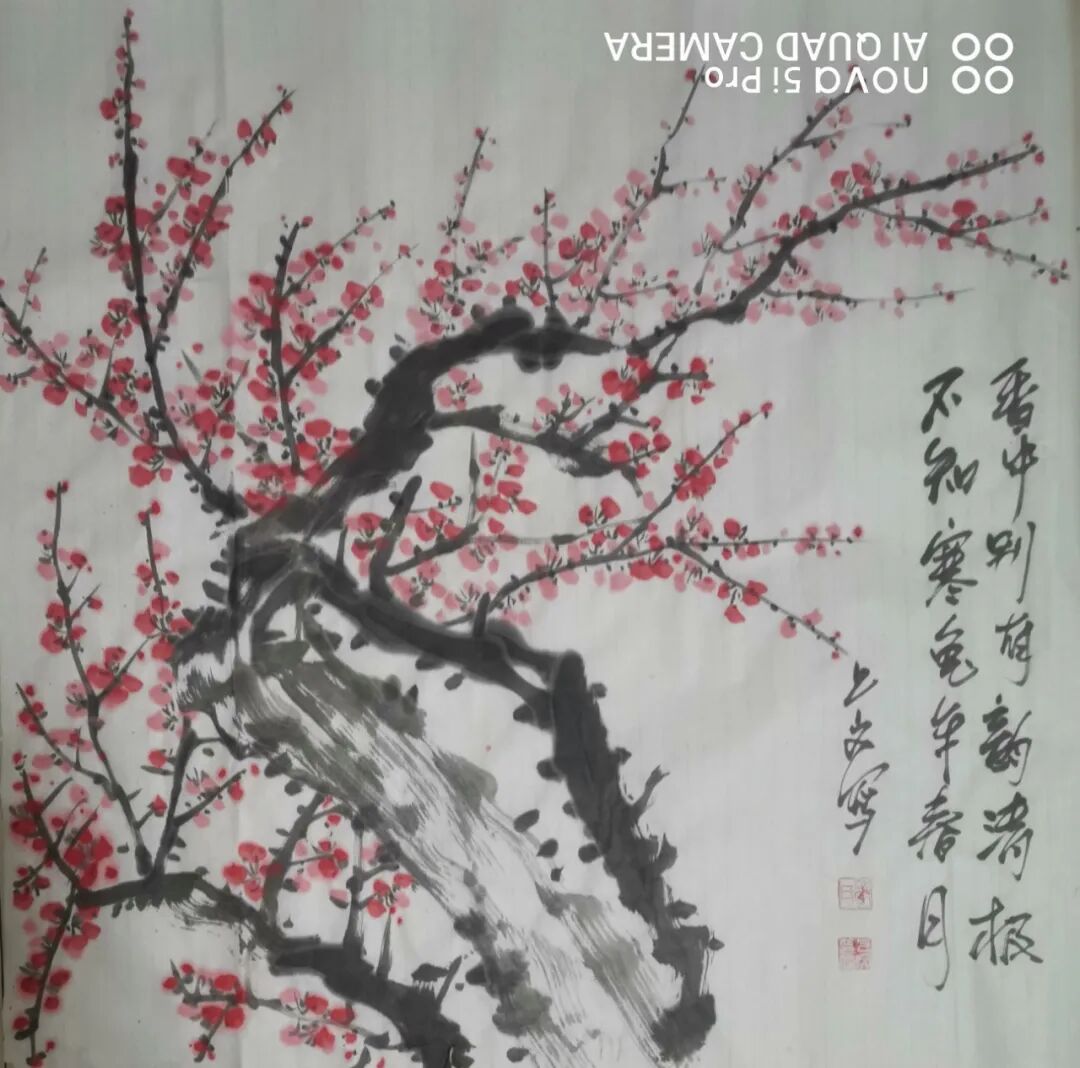 香中别有韵清极
不知寒兔年春月
上文写
nova 5i Pro
AI QUAD CAMERA